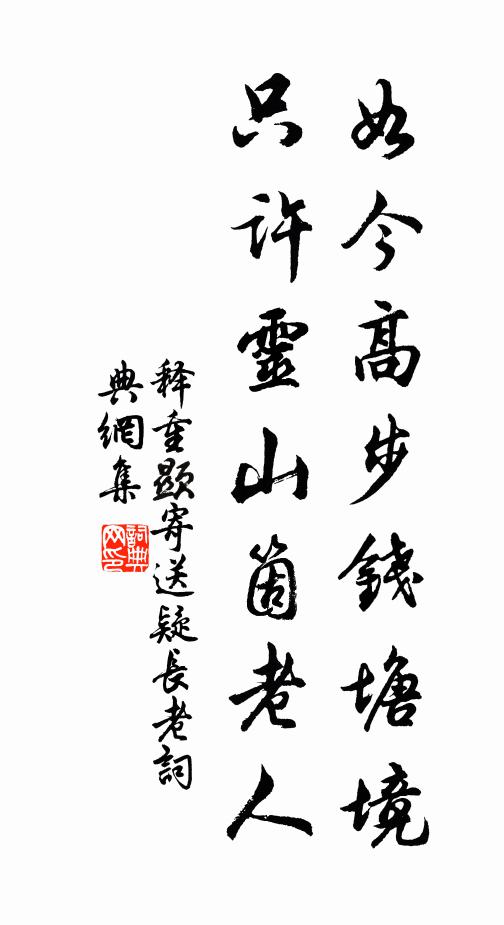 如今高步錢塘境
只許靈山箇老人
释重顯寄送疑長老詞
典網集
詞典
网印